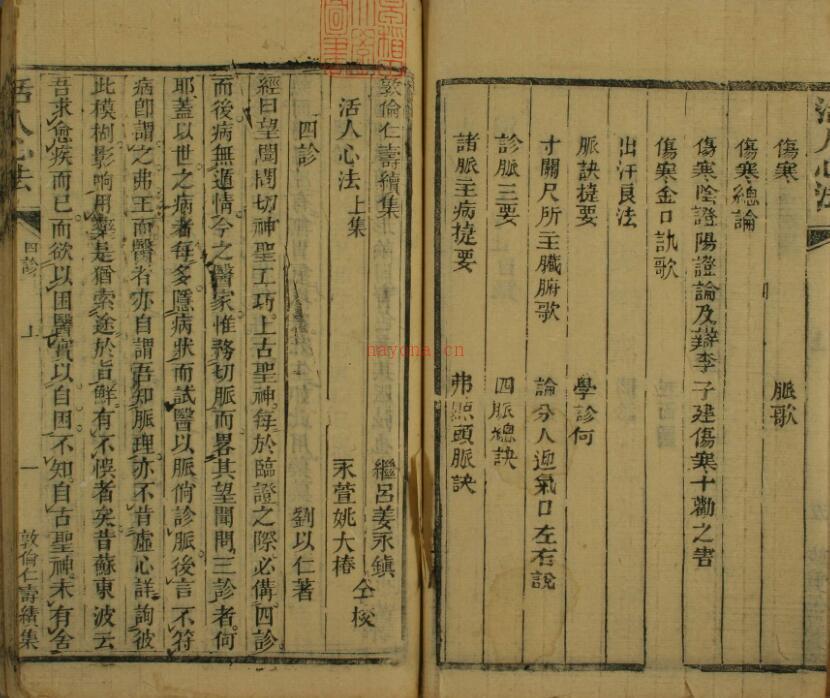 傷寒 脈歌
傷寒總論
傷寒陰證陽證論及辯李子建傷寒十勸之害
傷寒金口訣歌
出汗良法
脈訣捷要 學診何
寸關尺所主臟腑歌 論分人迎氣口左右說
診脈三要 四脈總訣
諸脈主病捷要 弗照頭脈訣
活人心法
敦倫仁壽續集 繼呂姜永鎮
活人心法上集 永萱姚大椿 仝校
四診 劉以仁著
經曰望聞問切神聖工巧上古聖神每於臨證之際必備四診
而後病無遁情今之醫家惟務切脈而畧其望聞問三診者何
耶蓋以世之病者每多隱病狀而試醫以脈倘診脈後言不符
病卽謂之弗王而醫者亦自謂吾知脈理亦不肯虛心詳詢彼
此模糊影响用藥是猶索途於盲鮮有不悞者矣昔蘇東波云
吾求愈疾而已而欲以困醫實以自困不知自古聖神未有舍
活人心法 四診 上 一 敦倫仁壽續集
nayona.cn